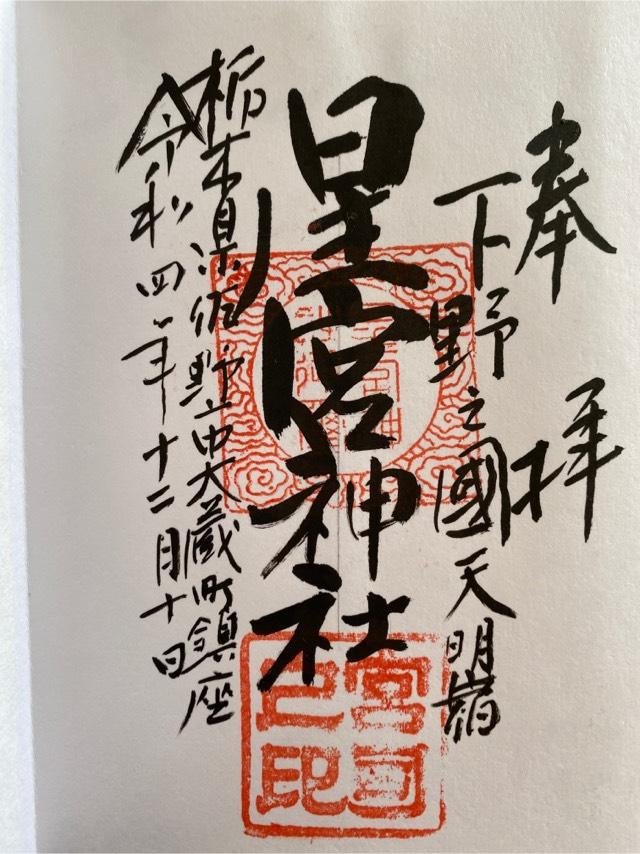 奉拝
下野之國天明宿
星宮神社
栃木県佐野市大蔵町鎮座
令和四年十二月十日
宮司
之印